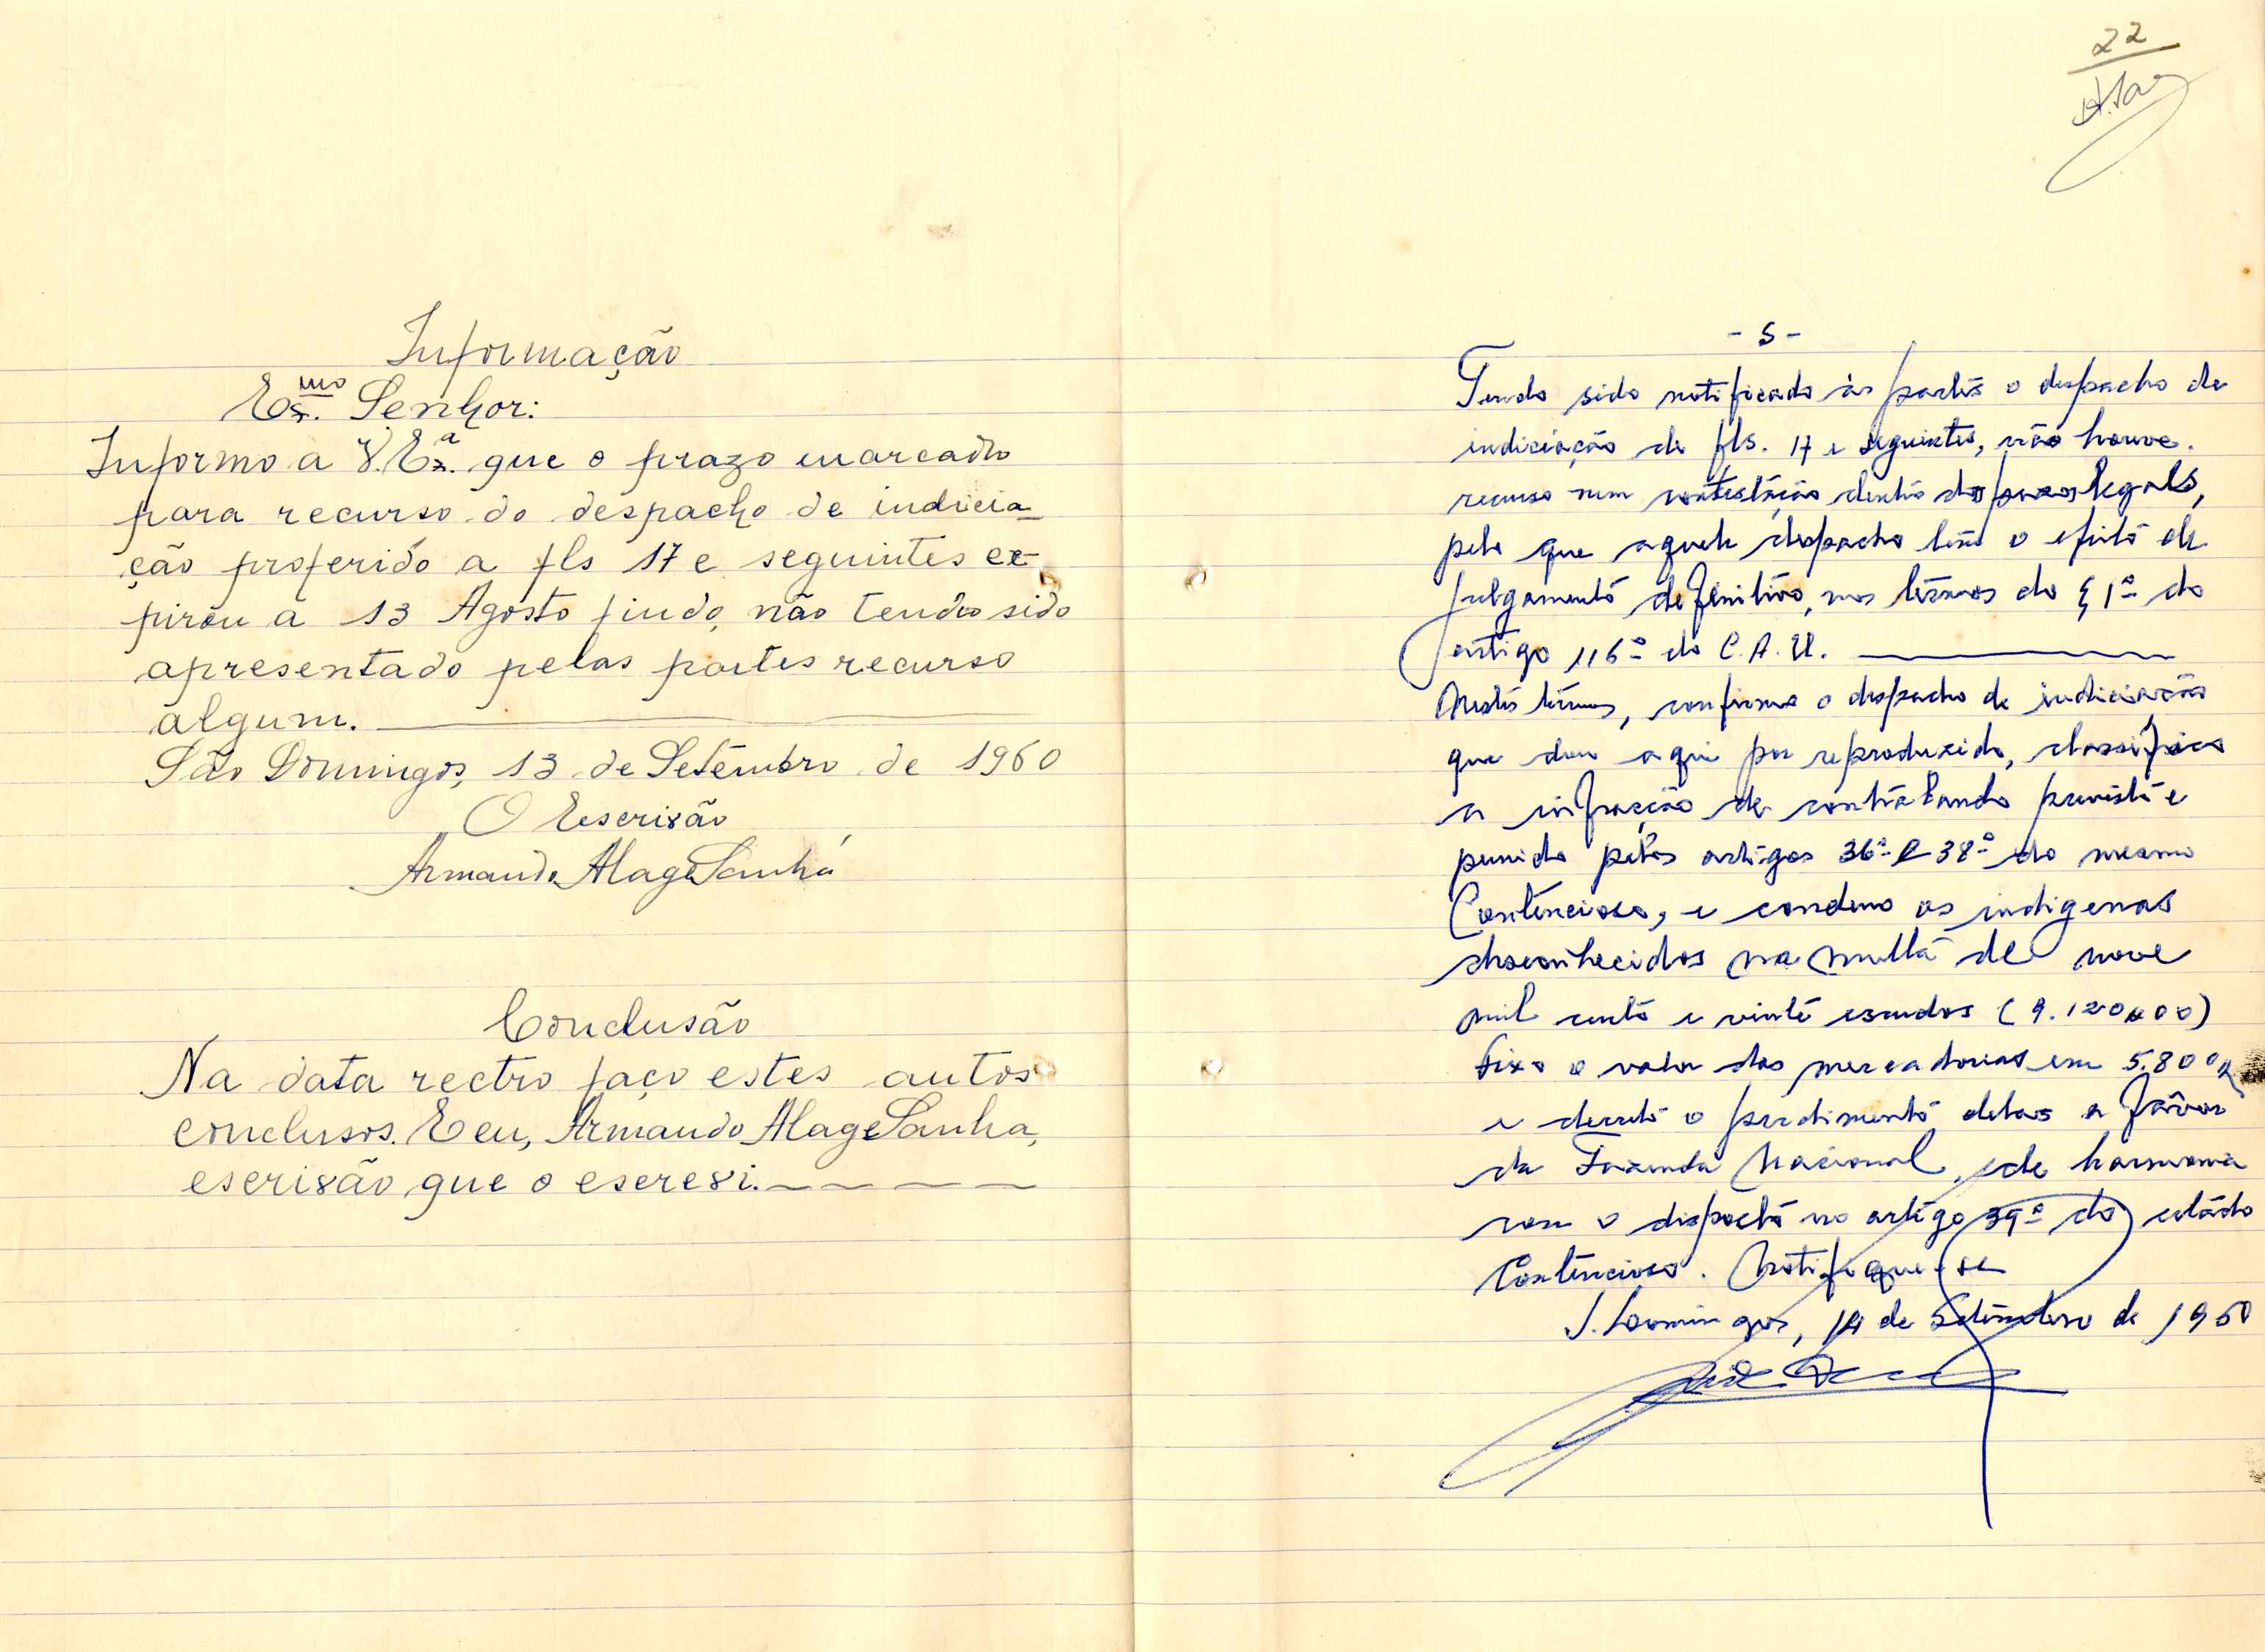 Informação
Exmo. Senhor:
Informo a V. Exa. que o prazo marcado
para recurso do despacho de indicia-
ção proferido a fls 17 e seguintes ex-
pirou a 13 Agosto findo, não tendo sido
apresentado pelas partes recurso
algum.
São Domingos, 13 de Setembro de 1960
O Escrivão
Armando Alage Sanhá
Conclusão
Na data rectro faço estes autos
conclusos. E eu, Armando Alage Sanha,
escrivão que o escrevi.
22
- S -
Tendo sido notificado às partes o despacho de
indiciação de fls. 17 e seguintes, não houve
recurso nem contestação dentro dos prazos legais,
pelo que aquele despacho tem o efeito de
julgamento definitivo, nos têrmos do § 1º do
artigo 116º do C. A. U.
Nestes têrmos, confirmo o despacho de indiciação
que dou aqui por reproduzido, classifico
a infracção de contrabando previsto e
punido pelos artigos 36º e 38º do mesmo
Contencioso, e condeno os indigenas
desconhecidos na multa de nove
mil cento e vinte escudos (9.120$00)
Fixo o valor das mercadorias em 5.800$
e decreto o perdimento delas a favor
da Fazenda Nacional, de harmonia
com o disposto no artigo 39º do citado
Contencioso. Notifique-se
S. Domingos, 14 de Setembro de 1960